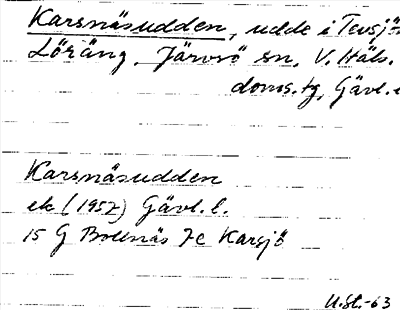 Karsnäsudden, udde i Tevsjön
Löräng, Järvsö sn, V. Häls.
doms.tg, Gävl.
Karsnäsudden
ek (1957) Gävl.l.
15 G Bollnäs 7c Karsjö
U.St.-63